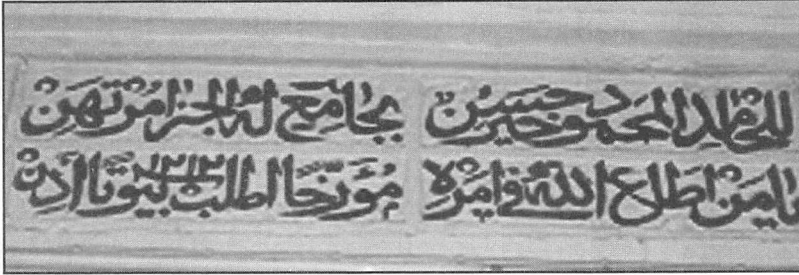 المحمود خير حسن بجامع له الجزا مرتهن
يا من اطاع الله في امره مؤرخا اطلب بيوتا اذن